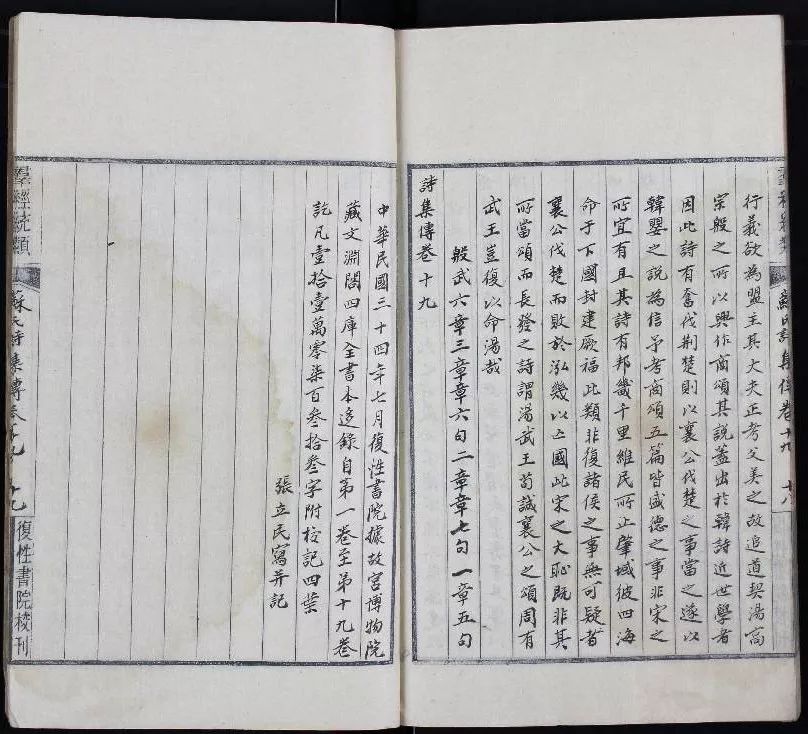 行義欲為盟主其大夫正考父美之故追道契湯高
宗殷之所以興作商頌其說蓋出於韓詩近世學者
因此詩有奮伐荆楚則以襄公伐楚之事當之遂以
韓嬰之說為信予考商頌五篇皆盛德之事非宋之
所宜有且其詩有邦畿千里維民所止肇域彼四海
命于下國封建厥福此類非復諸侯之事無可疑者
襄公伐楚而敗於泓幾以亡國此宋之大恥既非其
所當頌而長發之詩謂湯武王苟誠襄公之頌周有
武王豈復以命湯哉
殷武六章三章章六句二章章七句一章五句
詩集傳卷十九
中華民國三十四年七月復性書院據故宮博物院
藏文淵閣四庫全書本迻錄自第一卷至第十九卷
訖凡壹拾壹萬零柒百叁拾叁字附校記四葉
張立民寫并記
羣經統類
蘇氏詩集傳卷十九
十九
復性書院校刊
羣經統類
蘇氏詩集傳卷十九
十八